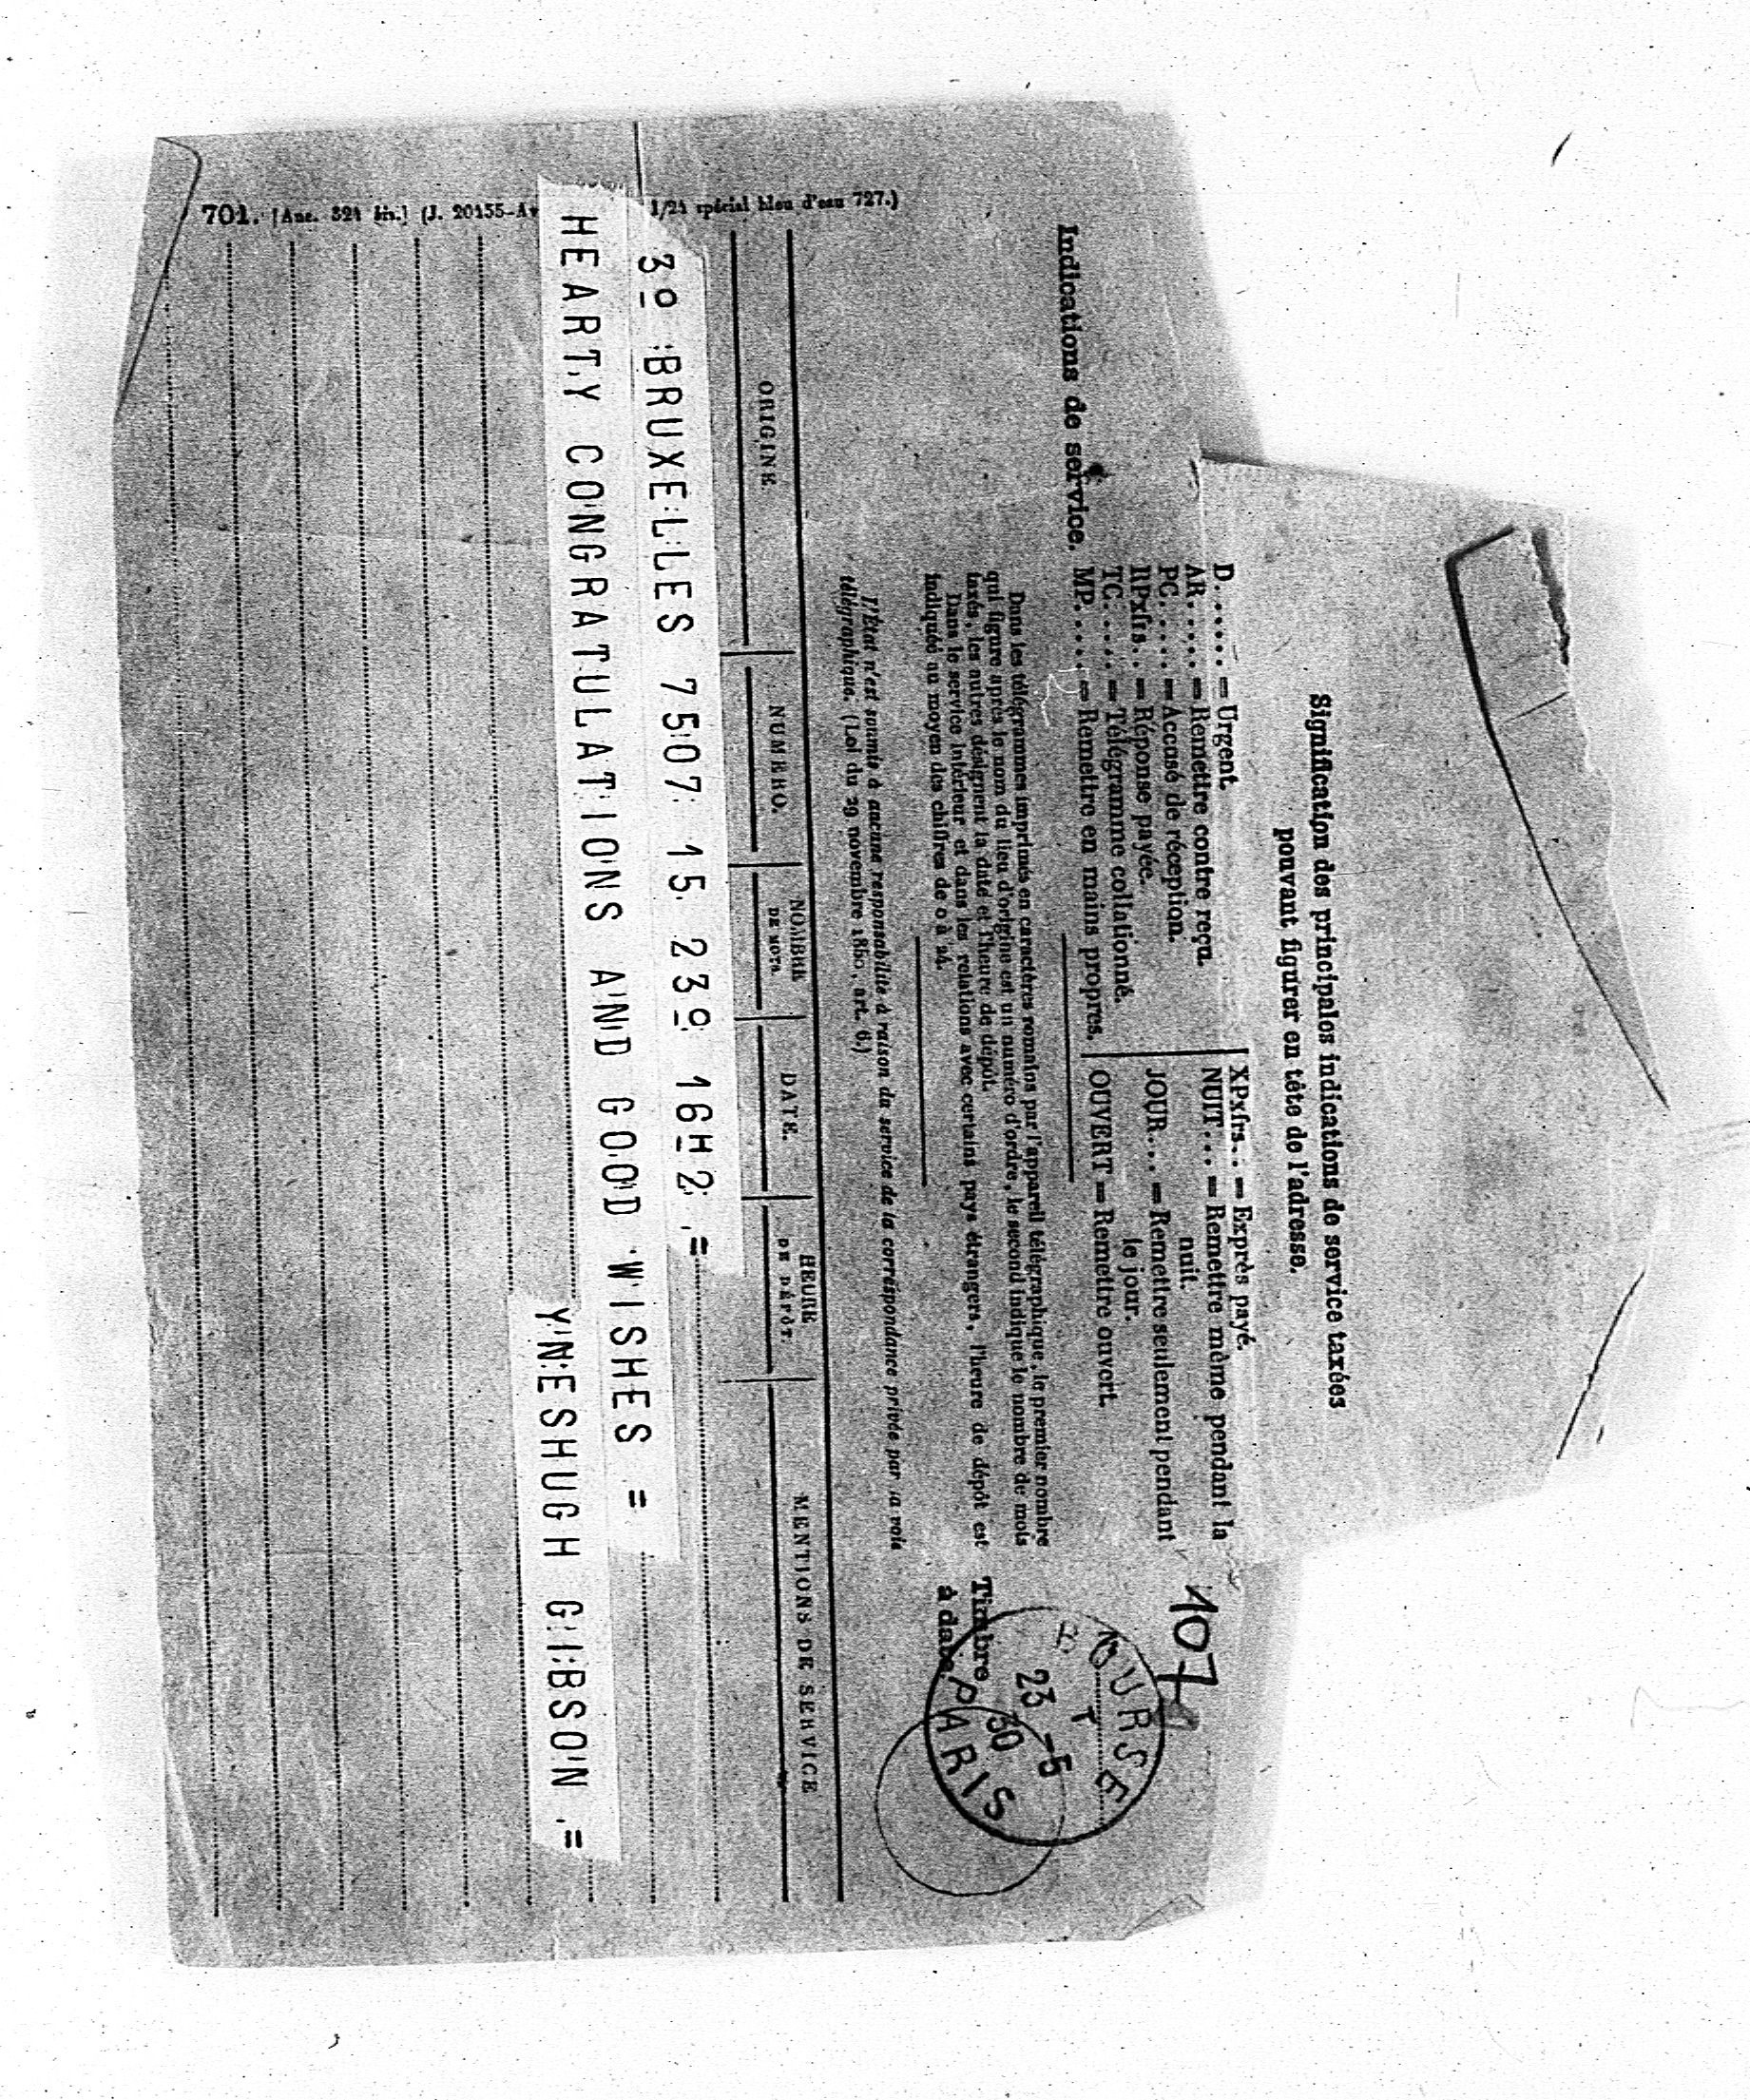 Signification des principales indications de service taxées
pouvant figurer en tête de l'adresse.
Indications de service.
D....... = Urgent.
AR..... = Remettre contre reçu.
PC...... = Accusé de réception.
RPxfrs.. = Réponse payée.
TC...... = Télégramme collationné.
MP..... = Remettre en mains propres.
XPxfrs.. = Exprès payé.
NUIT... = Remettre même pendant la
nuit.
JOUR... = Remettre seulement pendant
le jour.
OUVERT = Remettre ouvert.
Dans les télégrammes imprimés en caractères romains par l'appareil télégraphique, le premier nombre
qui figure après le nom du lieu d'origine est un numéro d'ordre, le second indique le nombre de mots
taxés, les autres désignent la date et l'heure de dépôt.
Dans le service intérieur et dans les relations avec certains pays étrangers, l'heure de dépôt est
indiquée au moyen des chiffres de 0 à 24.
L'État n'est soumis à aucune responsabilité à raison du service de la correspondance privée par la voie
télégraphique. (Loi du 29 novembre 1850, art. 6.)
107
Timbre
à date.
BOURSE
T
23 -5
30
PARIS
ORIGINE.
NUMÉRO.
NOMBRE
DE MOTS.
DATE.
HEURE
DE DÉPÔT.
MENTIONS DE SERVICE
3º BRUXELLES 7507 15 23º 16H2 .=
HEARTY CONGRATULATIONS AND GOOD WISHES =
YNESHUGH GIBSON .=
701. [Anc. 324 bis.] (J. 20155-A 1/24 spécial bleu d'eau 727.)